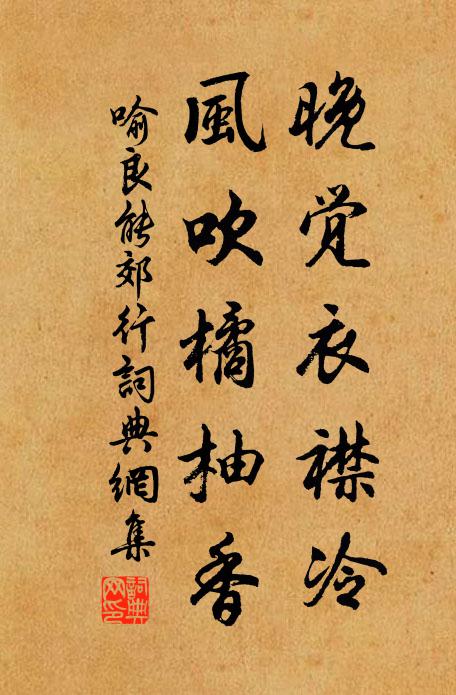 晚觉衣襟冷
風吹橘柚香
喻良能郊行詞典網集
詞典网印